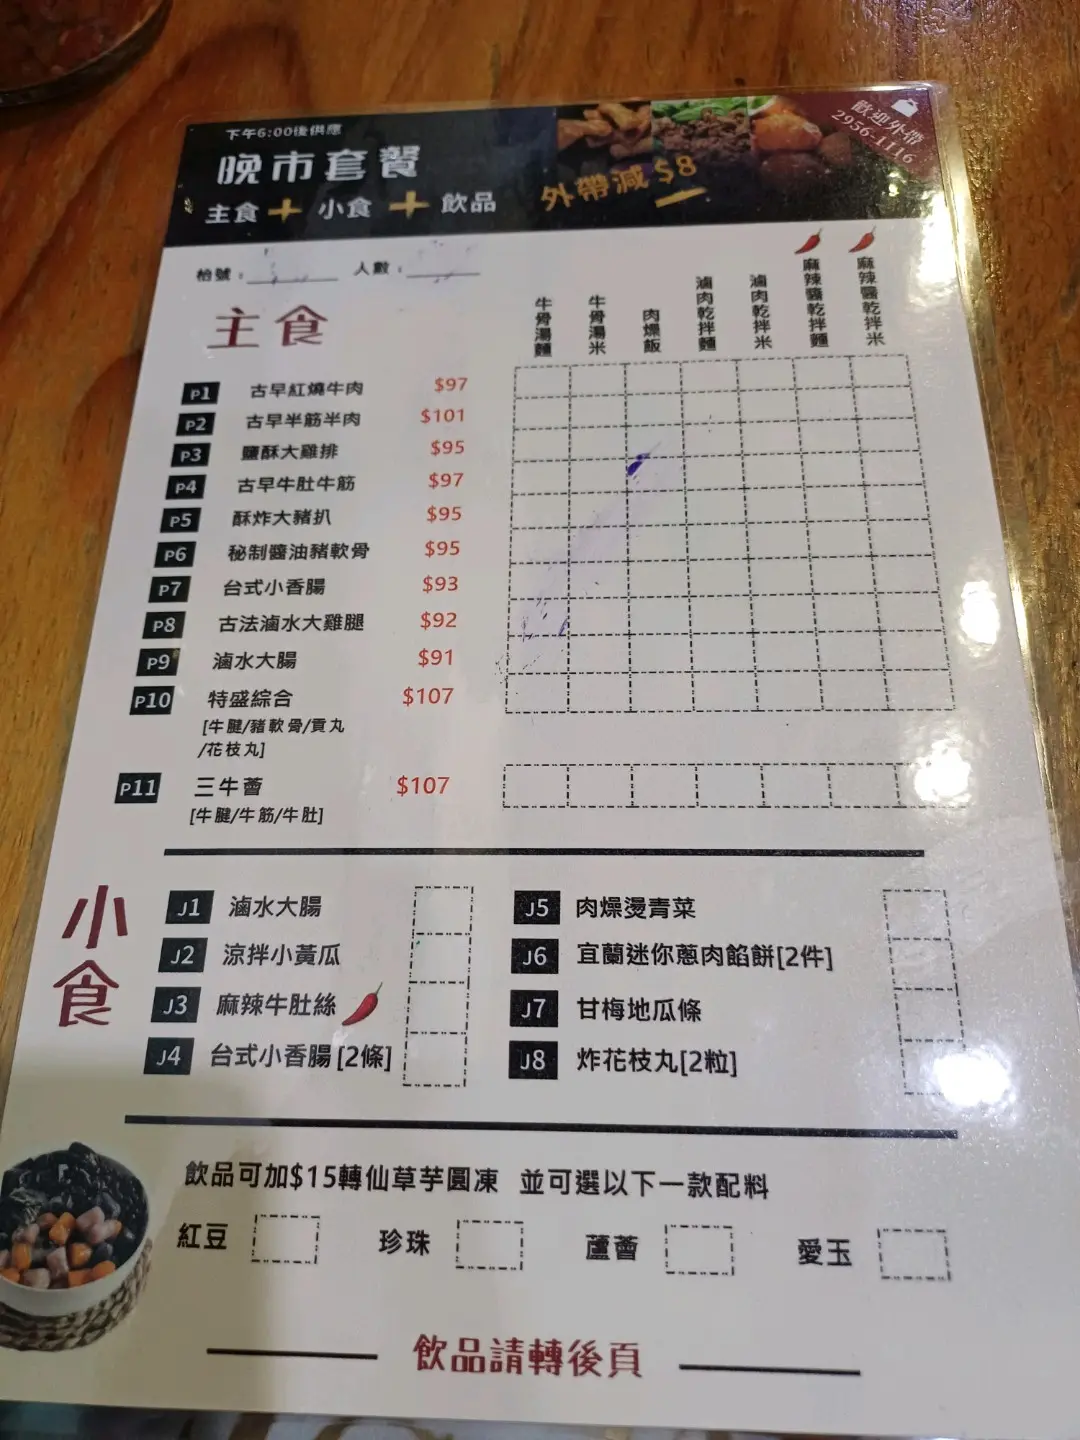 下午6:00後供應
晚市套餐
主食＋小食＋飲品
外帶減$8
歡迎外帶
2956-1116
枱號：
人數：
主食
牛骨湯麵
牛骨湯米
肉燥飯
滷肉乾拌麵
滷肉乾拌米
麻辣醬乾拌麵
麻辣醬乾拌米
P1 古早紅燒牛肉 $97
P2 古早半筋半肉 $101
P3 鹽酥大雞排 $95
P4 古早牛肚牛筋 $97
P5 酥炸大豬扒 $95
P6 秘制醬油豬軟骨 $95
P7 台式小香腸 $93
P8 古法滷水大雞腿 $92
P9 滷水大腸 $91
P10 特盛綜合 $107
[牛腱/豬軟骨/貢丸
/花枝丸]
P11 三牛薈 $107
[牛腱/牛筋/牛肚]
小食
J1 滷水大腸
J2 涼拌小黃瓜
J3 麻辣牛肚絲
J4 台式小香腸[2條]
J5 肉燥燙青菜
J6 宜蘭迷你蔥肉餡餅[2件]
J7 甘梅地瓜條
J8 炸花枝丸[2粒]
飲品可加$15轉仙草芋圓凍 並可選以下一款配料
紅豆 珍珠 蘆薈 愛玉
飲品請轉後頁